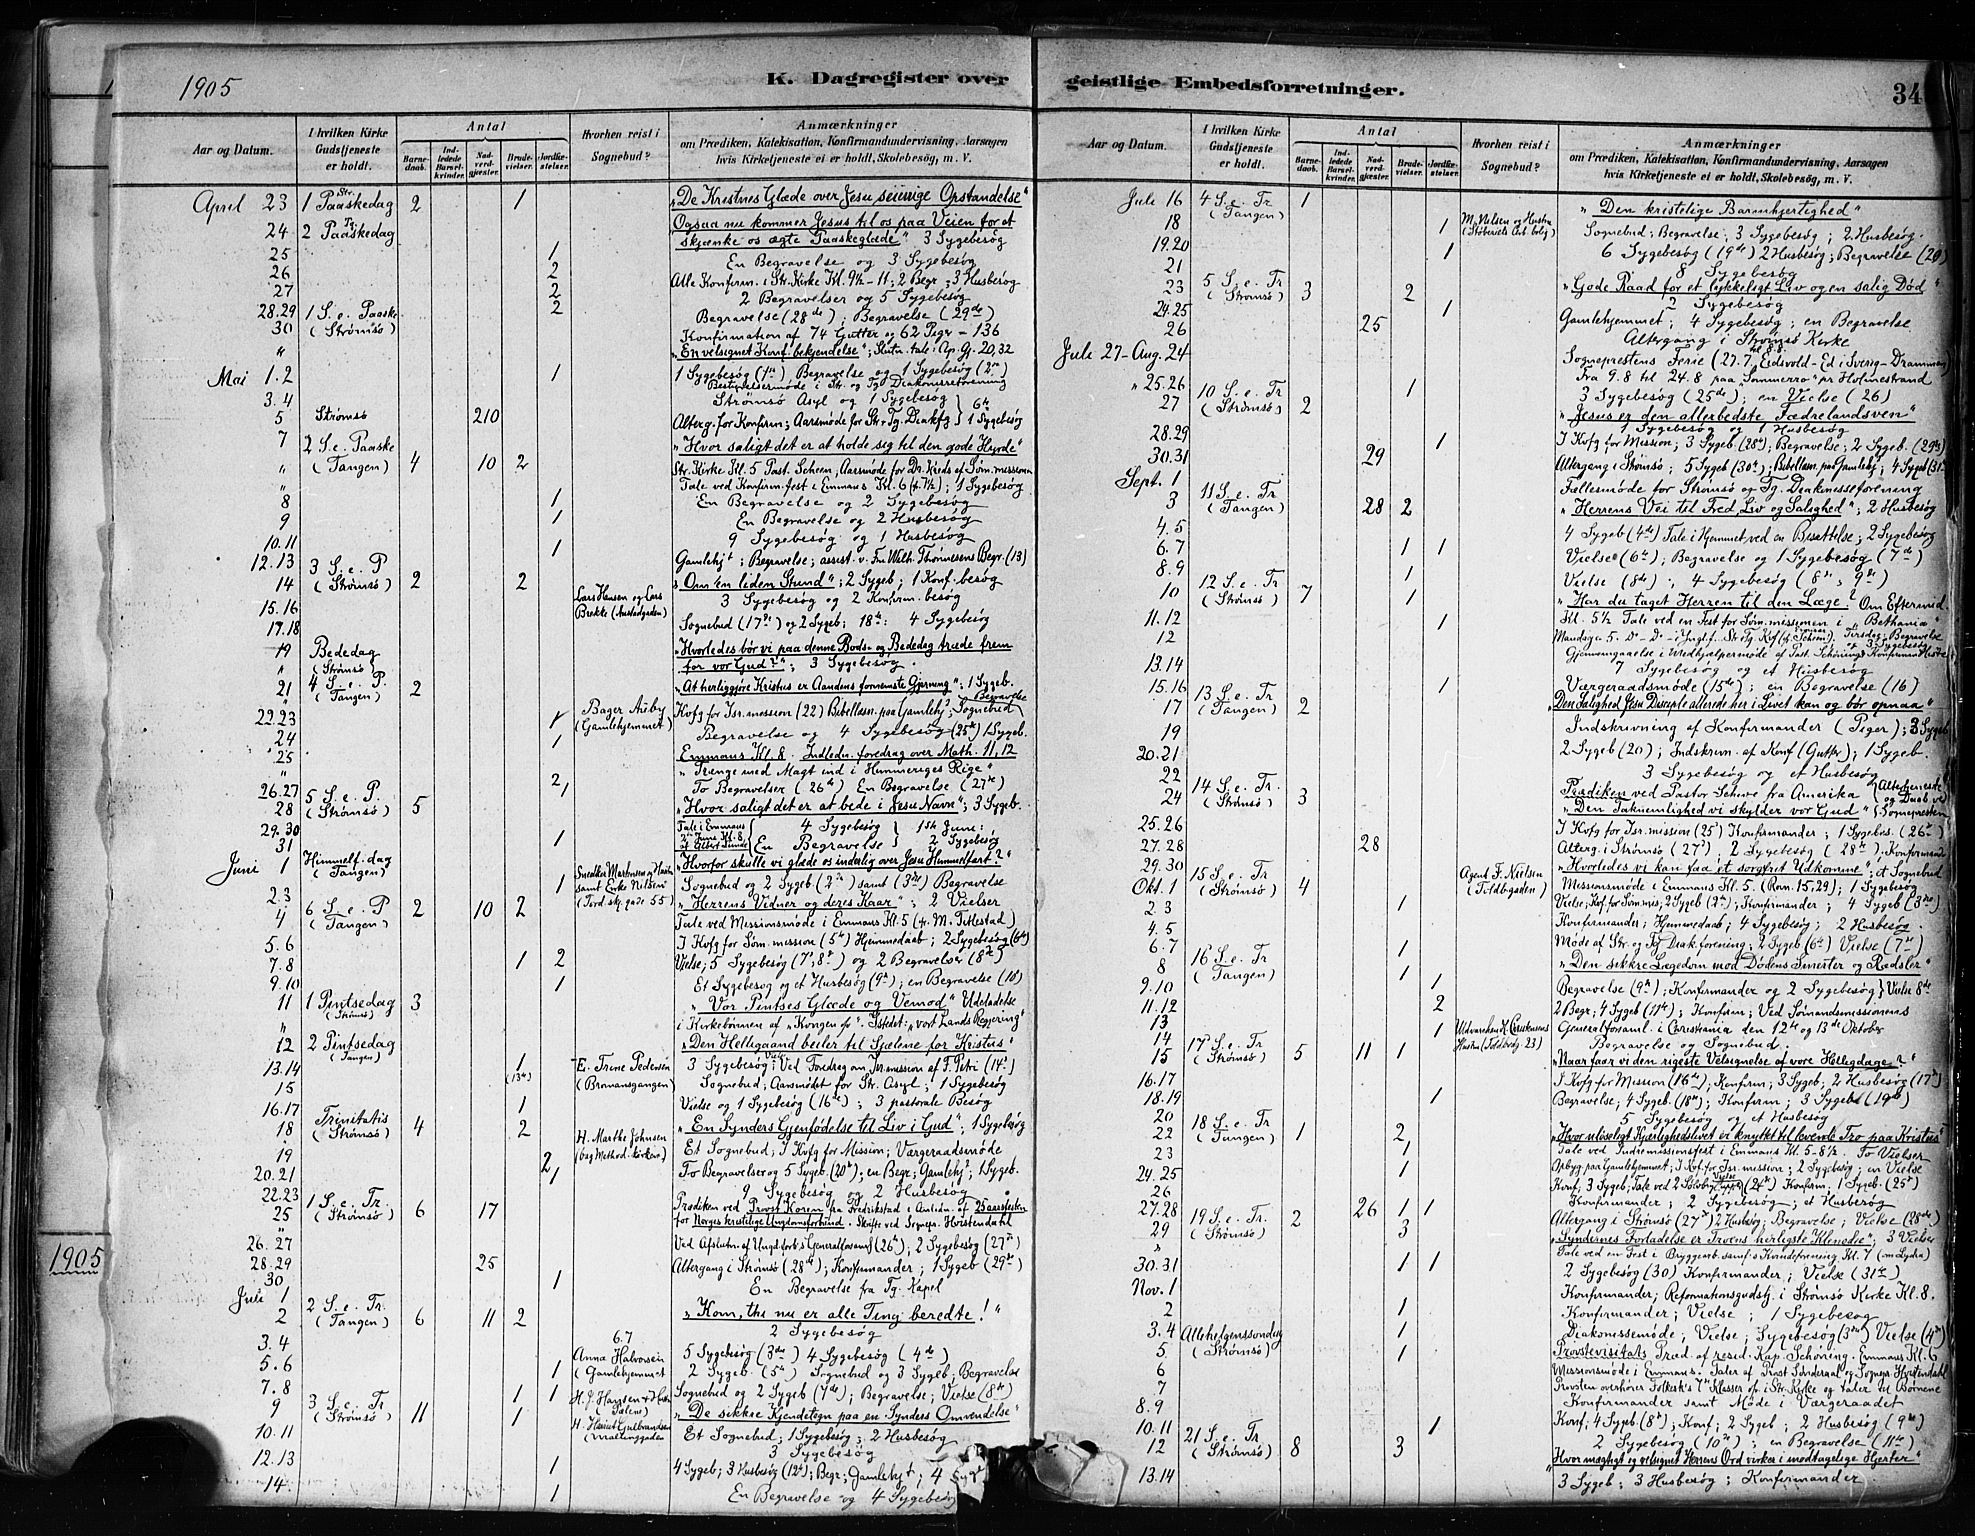 1905
K. Dagregister over
Aar og Datum.
I hvilken Kirke Gudstjeneste er holdt.
Antal
Barnedaab.
Indledede Barselkvinder.
Nadverdgjæster.
Brudevielser.
Jordfæstelser.
Hvorhen reist i Sognebud?
Anmærkninger
om Prædiken, Katekisation, Konfirmandundervisning, Aarsagen
hvis Kirketjeneste ei er holdt, Skolebesøg, m. V.
April 23 1 Paaskedag 2 1 „De Kristnes Glæde over Jesu seierrige Opstandelse"
Ogsaa nu kommer Jesus til os paa Veien for at
24 2 Paaskedag skjænke os ægte Paaskeglæde" 3 Sygebesøg
25 1 En Begravelse og 3 Sygebesøg
26 2 Alle Konfirm. i Str. Kirke Kl. 9½-11; 2 Begr; 3 Husbesøg
27 2 2 Begravelser og 5 Sygebesøg
28.29 1 S. e. Paaske 2 Begravelse (28de); Begravelse (29de)
30 (Strømsø) Konfirmation af 74 Gutter og 62 Piger - 136
" „En velsignet Konf. bekjendelse"; Slutn. tale: Ap. G. 20,32
Mai 1.2 1 1 Sygebesøg (1ste) Begravelse og 1 Sygebesøg (2den)
Bestyrelsesmøde i Str. og Tg. Diakonisseforening
3.4 Strømsø Asyl og 1 Sygebesøg
5 Strømsø 210 Alterg. for Konfirm; Aarsmøde for Str & Tg. Diakfg 1 Sygebesøg
7 2 S. e. Paaske „Hvor saligt det er at holde sig til den gode Hyrde"
" (Tangen) 4 10 2 Str. Kirke Kl. 5 Past. Scheen; Aarsmøde for Dr. Kreds af Søm. missionen
" Tale ved Konfirm. fest i Emmaus Kl. 6 (4.7½); 1 Sygebesøg
8 1 En Begravelse og 2 Sygebesøg
9 1 En Begravelse og 2 Husbesøg
10.11 9 Sygebesøg og 1 Husbesøg
12.13 3 S. e. P 1 Gamlehjt; Begravelse; assist. v. Fru Wilh. Thornesens Begr. (13)
14 (Strømsø) 2 2 „Om en liden Stund"; 2 Sygeb; 1 Konf. besøg
15.16 Lars Hansen og Lars 3 Sygebesøg og 2 Konfirm. besøg
17.18 Brekke (Austadgaden) Sognebud (17de) og 2 Sygeb; 18de: 4 Sygebesøg
19 Bededag „Hvorledes bør vi paa denne Bods- og Bededag træde frem
" (Strømsø) for vor Gud?"; 3 Sygebesøg.
21 4 S. e. P. (Tangen) 2 „At herliggjøre Kristus er Aandens fornemste Gjerning"; 1 Sygeb.
22.23 Bager Auby (Gamlehjemmet) 1 Kvfg for Isr. mission (22) Bibellæsn. paa Gamlehjt; Sognebud Begravelse
24 1 Begravelse og 4 Sygebesøg (25de) 1 Sygeb.
25 Emmaus Kl. 8. Indledn. foredrag over Math. 11,12
" „Trænge med Magt ind i Himmeriges Rige"
26.27 5 S. e. P. 2, To Begravelser (26de) En Begravelse (27de)
28 (Strømsø) 5 „Hvor saligt det er at bede i Jesu Navn"; 3 Sygeb.
29.30 Tale i Emmaus 4 Sygebesøg 1ste Juni:
31 1 En Begravelse 2 Sygebesøg
Juni 1 Himmelf. dag (Tangen) „Hvorfor skulle vi glæde os inderlig over Jesu Himmelfart?"
2.3 1 Sognebud og 2 Sygeb (2den) samt (3die) Begravelse
4 6 S. e. P (Tangen) 2 10 2 „Herrens Vidner og deres Kaar"; 2 Vielser
Tale ved Missionsmøde i Emmaus Kl. 5 (4. M. Tittestad)
5.6 I Kvfg for Søm. mission (5te) Hjemmedaab; 2 Sygebesøg (6te)
7.8 1 2 Vielse; 5 Sygebesøg (7de, 8de) og 2 Begravelser (8de)
9.10 1 Et Sygebesøg og et Husbesøg (9de); en Begravelse (10)
11 1 Pintsedag (Strømsø) 3 „Vor Pintses Glæde og Vemod" Udeladelse
" i Kirkebønnen af „Kongen &c". Istedet: „vort Lands Regjering"
12 2 Pintsedag (Tangen) „Den Helligaand beiler til Sjælene for Kristus"
13.14 1 (13de) E. Trine Pedersen 3 Sygebesøg; Ved Foredrag om Isr. mission af F. Petri (14de)
15 (Bromansgangen) Sognebud; Aarsmødet for Str. Asyl; 1 Sygebesøg
16.17 1 Vielse og 1 Sygebesøg (16de); 3 pastorale Besøg
18 Trinitatis (Strømsø) 4 2 „En Synders Gjenfødelse til Liv i Gud"; 1 Sygebesøg
19 H. Marthe Johnsen (bag Method. kirken) Et Sognebud; I Kvfg for Mission; Værgeraadsmøde
20.21 2, To Begravelser og 5 Sygeb. (20de); en Begr; Gamlehjt; 1 Sygeb.
22.23 9 Sygebesøg og 2 Husbesøg
25 1 S. e. Tr. (Strømsø) 6 17 Prædiken ved Provst Koren fra Fredrikstad i Anledn. af Aarsfesten
" for Norges kristelige Ungdomsforbund. Skrifte ved Sognepr. Hvistendahl
26.27 Ved Afslutn. af Ungd. forb.s Generalforsaml (26de); 2 Sygebesøg (27de)
28.29 25 Altergang i Strømsø (28de); Konfirmander; 1 Sygeb (29de)
30 1 En Begravelse fra Tg. Kapel
Juli 1
2 2 S. e. Tr. (Tangen) 6 11 2 „Kom, thi nu er alle Ting beredte!"
3.4 2 Sygebesøg
5.6 6.7 Anna Halvorsen 5 Sygebesøg (3die) 4 Sygebesøg (4de)
7.8 1 (Gamlehjemmet 2 Sygeb. (5te) Sognebud og 3 Sygeb; Begravelse
9 3 S. e. Tr (Strømsø) 11 1 1 Sognebud og 2 Sygeb (7de); Begravelse; Vielse (8de)
1 „De sikkre Kjendetegn paa en Synders Omvendelse"
10.11 Et Sognebud; 1 Sygebesøg; 2 Husbesøg
12.13 3 Sygebesøg
1 4 Sygeb; 3 Husbesøg (12te); Begr; Gamlehjt; 4 Syg
14 1 En Begravelse og 4 Sygebesøg
1905
geistlige Embedsforretninger.
34
Aar og Datum.
I hvilken Kirke Gudstjeneste er holdt.
Antal
Barnedaab.
Indledede Barselkvinder.
Nadverdgjæster.
Brudevielser.
Jordfæstelser.
Hvorhen reist i Sognebud?
Anmærkninger
om Prædiken, Katekisation, Konfirmandundervisning, Aarsagen
hvis Kirketjeneste ei er holdt, Skolebesøg, m. V.
Juli 16 4 S. e. Tr (Tangen) 1 „Den kristelige Barmhjertighed"
18 1 M. Nelsen og Hustru Sognebud; Begravelse; 3 Sygebesøg; 2 Husbesøg.
19.20 1 6 Sygebesøg (19de) 2 Husbesøg; Begravelse (20)
21 8 Sygebesøg
23 5 S. e. Tr (Strømsø) 3 2 „Gode Raad for et lykkeligt Liv og en salig Død"
24.25 1 2 Sygebesøg
26 25 Gamlehjemmet; 4 Sygebesøg; en Begravelse
Altergang i Strømsø Kirke
Juli 27-Aug. 24 Sogneprestens Ferie (27.7 Eidsvold - Ed i Sverig - Drammen)
Fra 9.8 til 24.8 paa „Sommerro" pr Holmestrand
" 25.26 1 3 Sygebesøg (25de); en Vielse (26)
27 10 S. e. Tr (Strømsø) 2 „Jesus er den allerbedste Fædrelandsven"
1 Sygebesøg og 1 Husbesøg
28.29 1 I Kvfg for Mission; 3 Sygeb (28de); Begravelse; 2 Sygeb. (29de)
30.31 29 Altergang i Strømsø; 5 Sygeb (30te); Bibellæsn. paa Gamlehj; 4 Sygeb (31te)
Sept. 1 Fællesmøde for Strømsø og Tg. Diakonisseforening
3 11 S. e. Tr (Tangen) 28 2 „Herrens Vei til Fred, Liv og Salighed"; 2 Husbesøg
4.5 4 Sygeb (4de) Tale i Hjemmet ved en Bisættelse; 2 Sygebesøg
6.7 1 1 Vielse (6te); Begravelse og 1 Sygebesøg (7de)
8.9 1 Vielse (8de); 4 Sygebesøg (8de; 9de)
10 12 S. e. Tr (Strømsø) 7 1 „Har du taget Herren til din Læge? Om Eftermid.
11.12 1 Kl. 5½ Tale ved en Fest for Søm. missionen i „Bethania"
12
13.14 7 Sygebesøg og et Husbesøg
15.16 1 Værgeraadsmøde (15de); en Begravelse (16)
17 13 S. e. Tr (Tangen) 2 „Den Salighed Jesu Disciple allerede her i Livet kan og bør opnaa"
19 Indskrivning af Konfirmander (Piger); 3 Sygeb
20.21 2 Sygeb (20); Indskrivn. af Konf (Gutter); 1 Sygeb.
22 3 Sygebesøg og et Husbesøg
24 14 S. e. Tr. (Strømsø) 3 Prædiken ved Pastor Schive fra Amerika (Altertjeneste og Daab ved
„Den Taknemlighed vi skylder vor Gud" Sognepresten
25.26 I Kvfg for Isr. mission (25de) Konfirmander; 1 Sygebes. (26de)
27.28 28 Alterg. i Strømsø (27de); 2 Sygebesøg (28de); Konfirmand
29.30 Agent F. Nielsen „Hvorledes vi kan faa et sorgfrit Udkomme"; et Sognebud
Okt. 1 15 S. e. Tr (Strømsø) 4 (Toldbgaden) Missionsmøde i Emmaus Kl. 5. (Rom. 15,29); 1 Sygebesøg
2.3 1 Vielse; Kvf. for Søm. mis; 2 Sygeb (2den); Konfirmander; 4 Sygeb (3die)
4.5 Konfirmander; Hjemmedaab; 4 Sygebesøg; 2 Husbesøg.
6.7 1 Møde af Str. og Tg. Diak. forening; 2 Sygeb (6te) Vielse (7de)
8 16 S. e. Tr (Tangen) 1 „Den sikkre Lægedom mod Dødens Smerter og Rædsler"
9.10 1 Begravelse (9de); Konfirmander og 2 Sygebesøg) Vielse 8de
11.12 2 2 Begr; 4 Sygeb (11te); Konfirm; Ved Sømandsmissionens
13 1 Generalforsaml. i Christiania den 12te og 13de Oktober
14 Begravelse og Sognebud.
15 17 S. e. Tr (Strømsø) 5 11 1 „Naar faar vi den rigeste Velsignelse af vore Helligdage?"
16.17 I Kvfg for Mission (16de); Konfirm; 3 Sygeb; 2 Husbesøg (17de)
18.19 1 Begravelse; 4 Sygeb. (18de); Konfirm; 3 Sygebes (19de)
20 5 Sygebesøg og et Husbesøg
22 18 S. e. Tr (Tangen) 1 2, „Hvor uløseligt Kjærlighedslivet er knyttet til levende Tro paa Kristus"
23 1 Tale ved Indremissionsfest i Emmaus Kl. 5-8½. To Vielser
24.25 1 Opbyg. paa Gamlehjemmet; I Kvf. for Isr. mission; 2 Sygebesøg; en Vielse
26 Konfirmander; 2 Sygebesøg; et Husbesøg
27.28 26 1 1 Altergang i Strømsø (27de) 2 Husbesøg; Begravelse; Vielse (28de)
29 19 S. e. Tr. (Strømsø) 2 3 „Syndernes Forladelse er Troens herligste Klenodie"; 3 Vielser
" Tale ved en Fest i Byggearb. samf.s Kvindeforening Kl. 7 (om Lydia)
30.31 1 1 2 Sygebesøg (30) Konfirmander; Vielse (31te)
Nov. 1 Konfirmander; Reformationsgudstj. i Strømsø Kirke Kl. 8.
2 1 Konfirmander; Vielse; 1 Sygebesøg
3.4 1 Diakonissemøde; Vielse; Sygebesøg (3die) Vielse (4de)
5 Allehelgenssøndag (Strømsø) 1 Provstevisitats. Præd. af resid. Kap. Schøning. Emmaus Kl. 6
6 Missionsmøde i Emmaus. Taler af Provst Sandersdal og Sognepr. Hvistendahl
7 Provsten overhører Folkesk's 7de Klasser op. i Str. Kirke og taler til Børnene
8.9 Konfirmander samt Møde i Værgeraadet
Konf; 4 Sygeb (8de); Konf; 2 Sygeb; 2 Husbesøg (9de)
10.11 1 2 Sygebesøg (10de); en Begravelse (11te)
12 21 S. e. Tr (Strømsø) 8 3 „Hvor mægtigt og velsignet Herrens Ord virker i modtagelige Hjerter"
13.14 3 Sygeb; 3 Husbesøg; Konfirmander